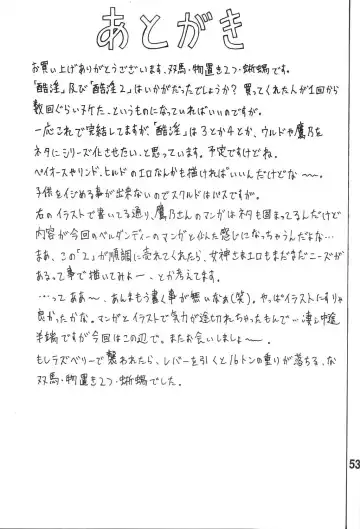 あとがき
お買い上げありがとうございます、双馬・物置き2つ・蜥蜴です。
「酷淫」及び「酷淫2」はいかがだったでしょうか? 買ってくれた人が1回から
数回ぐらいヌケた、というものになっていればいいのですが。
一応これで完結してますが、「酷淫」は3とか4とか、ウルドや鷹乃を
ネタにシリーズ化させたい、と思っています。予定ですけどね。
ペイオースやリンド、ヒルドのエロなんかも描ければいいんだけどな~~。
子供をイジめる事が出来ないのでスクルドはパスですが。
右のイラストで書いてる通り、鷹乃さんのマンガはネタも固まってるんだけど
内容が今回のベルダンディーのマンガと似た感じになっちゃうんだよな…
まあ、この「2」が順調に売れてくれたら、女神さまエロもまだまだニーズが
あるって事で描いてみよーー、とか考えてます。
…って ああ~、あんまもう書く事が無いなぁ(笑)。やっぱイラストにすりゃ
良かったかな。マンガとイラストで気力が途切れちゃったもんで…凄く中途
半端ですが今回はこの辺で。またお会いしましょ~。
もしラズベリーで襲われたら、レバーを引くと16トンの重りが落ちる、な
双馬・物置き2つ・蜥蜴でした。
53